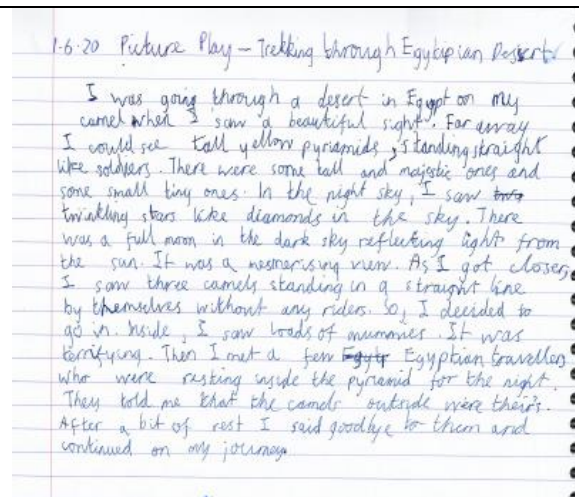 1-6-20 Picture Play – Trekking through Egytipian Desert
I was going through a desert in Egypt on my
camel when I saw a beautiful sight. Far away
I could see tall yellow pyriamids, standing straight
like soldiers. There were some tall and majestic ones and
some small tiny ones. In the night sky, I saw
twinkling stars like diamonds in the sky. There
was a full moon in the dark sky reflecting light from
the sun. It was a mesmerising view. As I got closer,
I saw three camels standing in a straight line
by themselves without any riders. So, I decided to
go in. Inside, I saw loads of mummies. It was
terrifying. Then I met a few Egyptian travellers
who were resting inside the pyriamid for the night.
They told me that the camels outside were their's.
After a bit of rest I said goodbye to them and
continued on my journey.